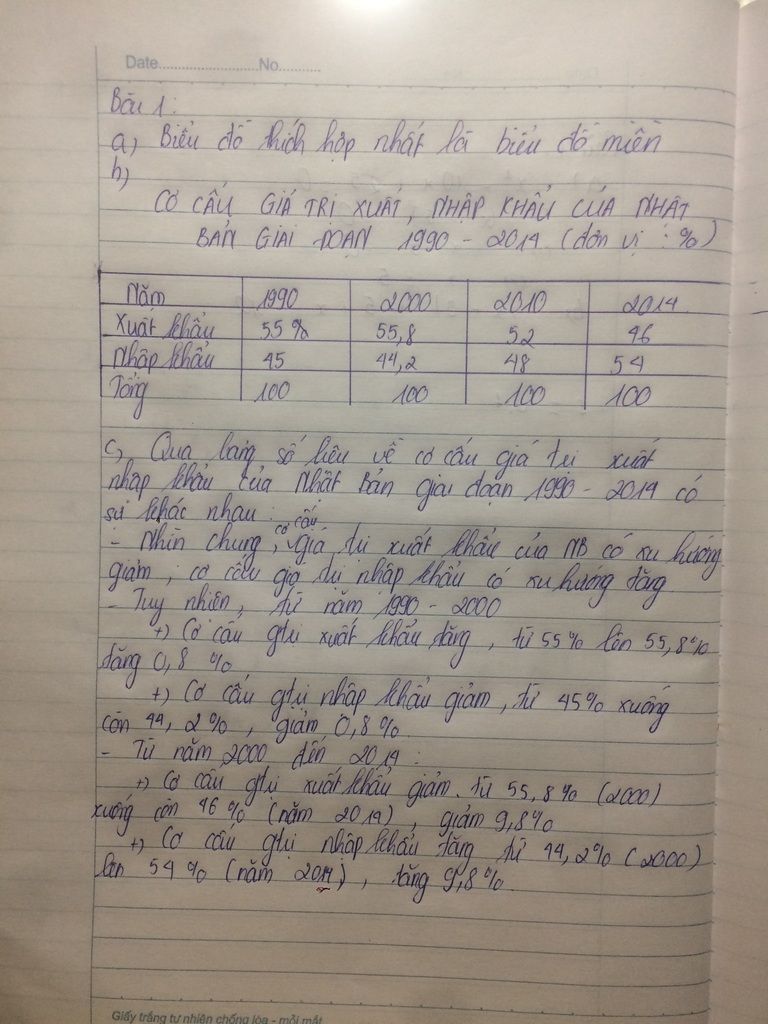 Date.........................No...........
Bài 1:
a) Biểu đồ thích hợp nhất là biểu đồ miền
b)
CƠ CẤU GIÁ TRỊ XUẤT, NHẬP KHẨU CỦA NHẬT
BẢN GIAI ĐOẠN 1990 - 2014 (đơn vị : %)
Năm 1990 2000 2010 2014
Xuất khẩu 55% 55,8 52 46
Nhập khẩu 45 44,2 48 54
Tổng 100 100 100 100
c, Qua bảng số liệu về cơ cấu giá trị xuất
nhập khẩu của Nhật Bản giai đoạn 1990 - 2014 có
sự khác nhau :
- Nhìn chung, cơ cấu giá trị xuất khẩu của NB có xu hướng
giảm, cơ cấu giá trị nhập khẩu có xu hướng tăng
- Tuy nhiên, từ năm 1990 - 2000
+) Cơ cấu gtrị xuất khẩu tăng, từ 55% lên 55,8%
tăng 0,8 %
+) Cơ cấu gtrị nhập khẩu giảm, từ 45% xuống
còn 44,2%, giảm 0,8%.
- Từ năm 2000 đến 2014 :
+) Cơ cấu gtrị xuất khẩu giảm. từ 55,8% (2000)
xuống còn 46% (năm 2014), giảm 9,8%
+) Cơ cấu gtrị nhập khẩu tăng từ 44,2% (2000)
lên 54% (năm 2014), tăng 9,8%.
Giấy trắng tự nhiên chống lóa - mỏi mắt